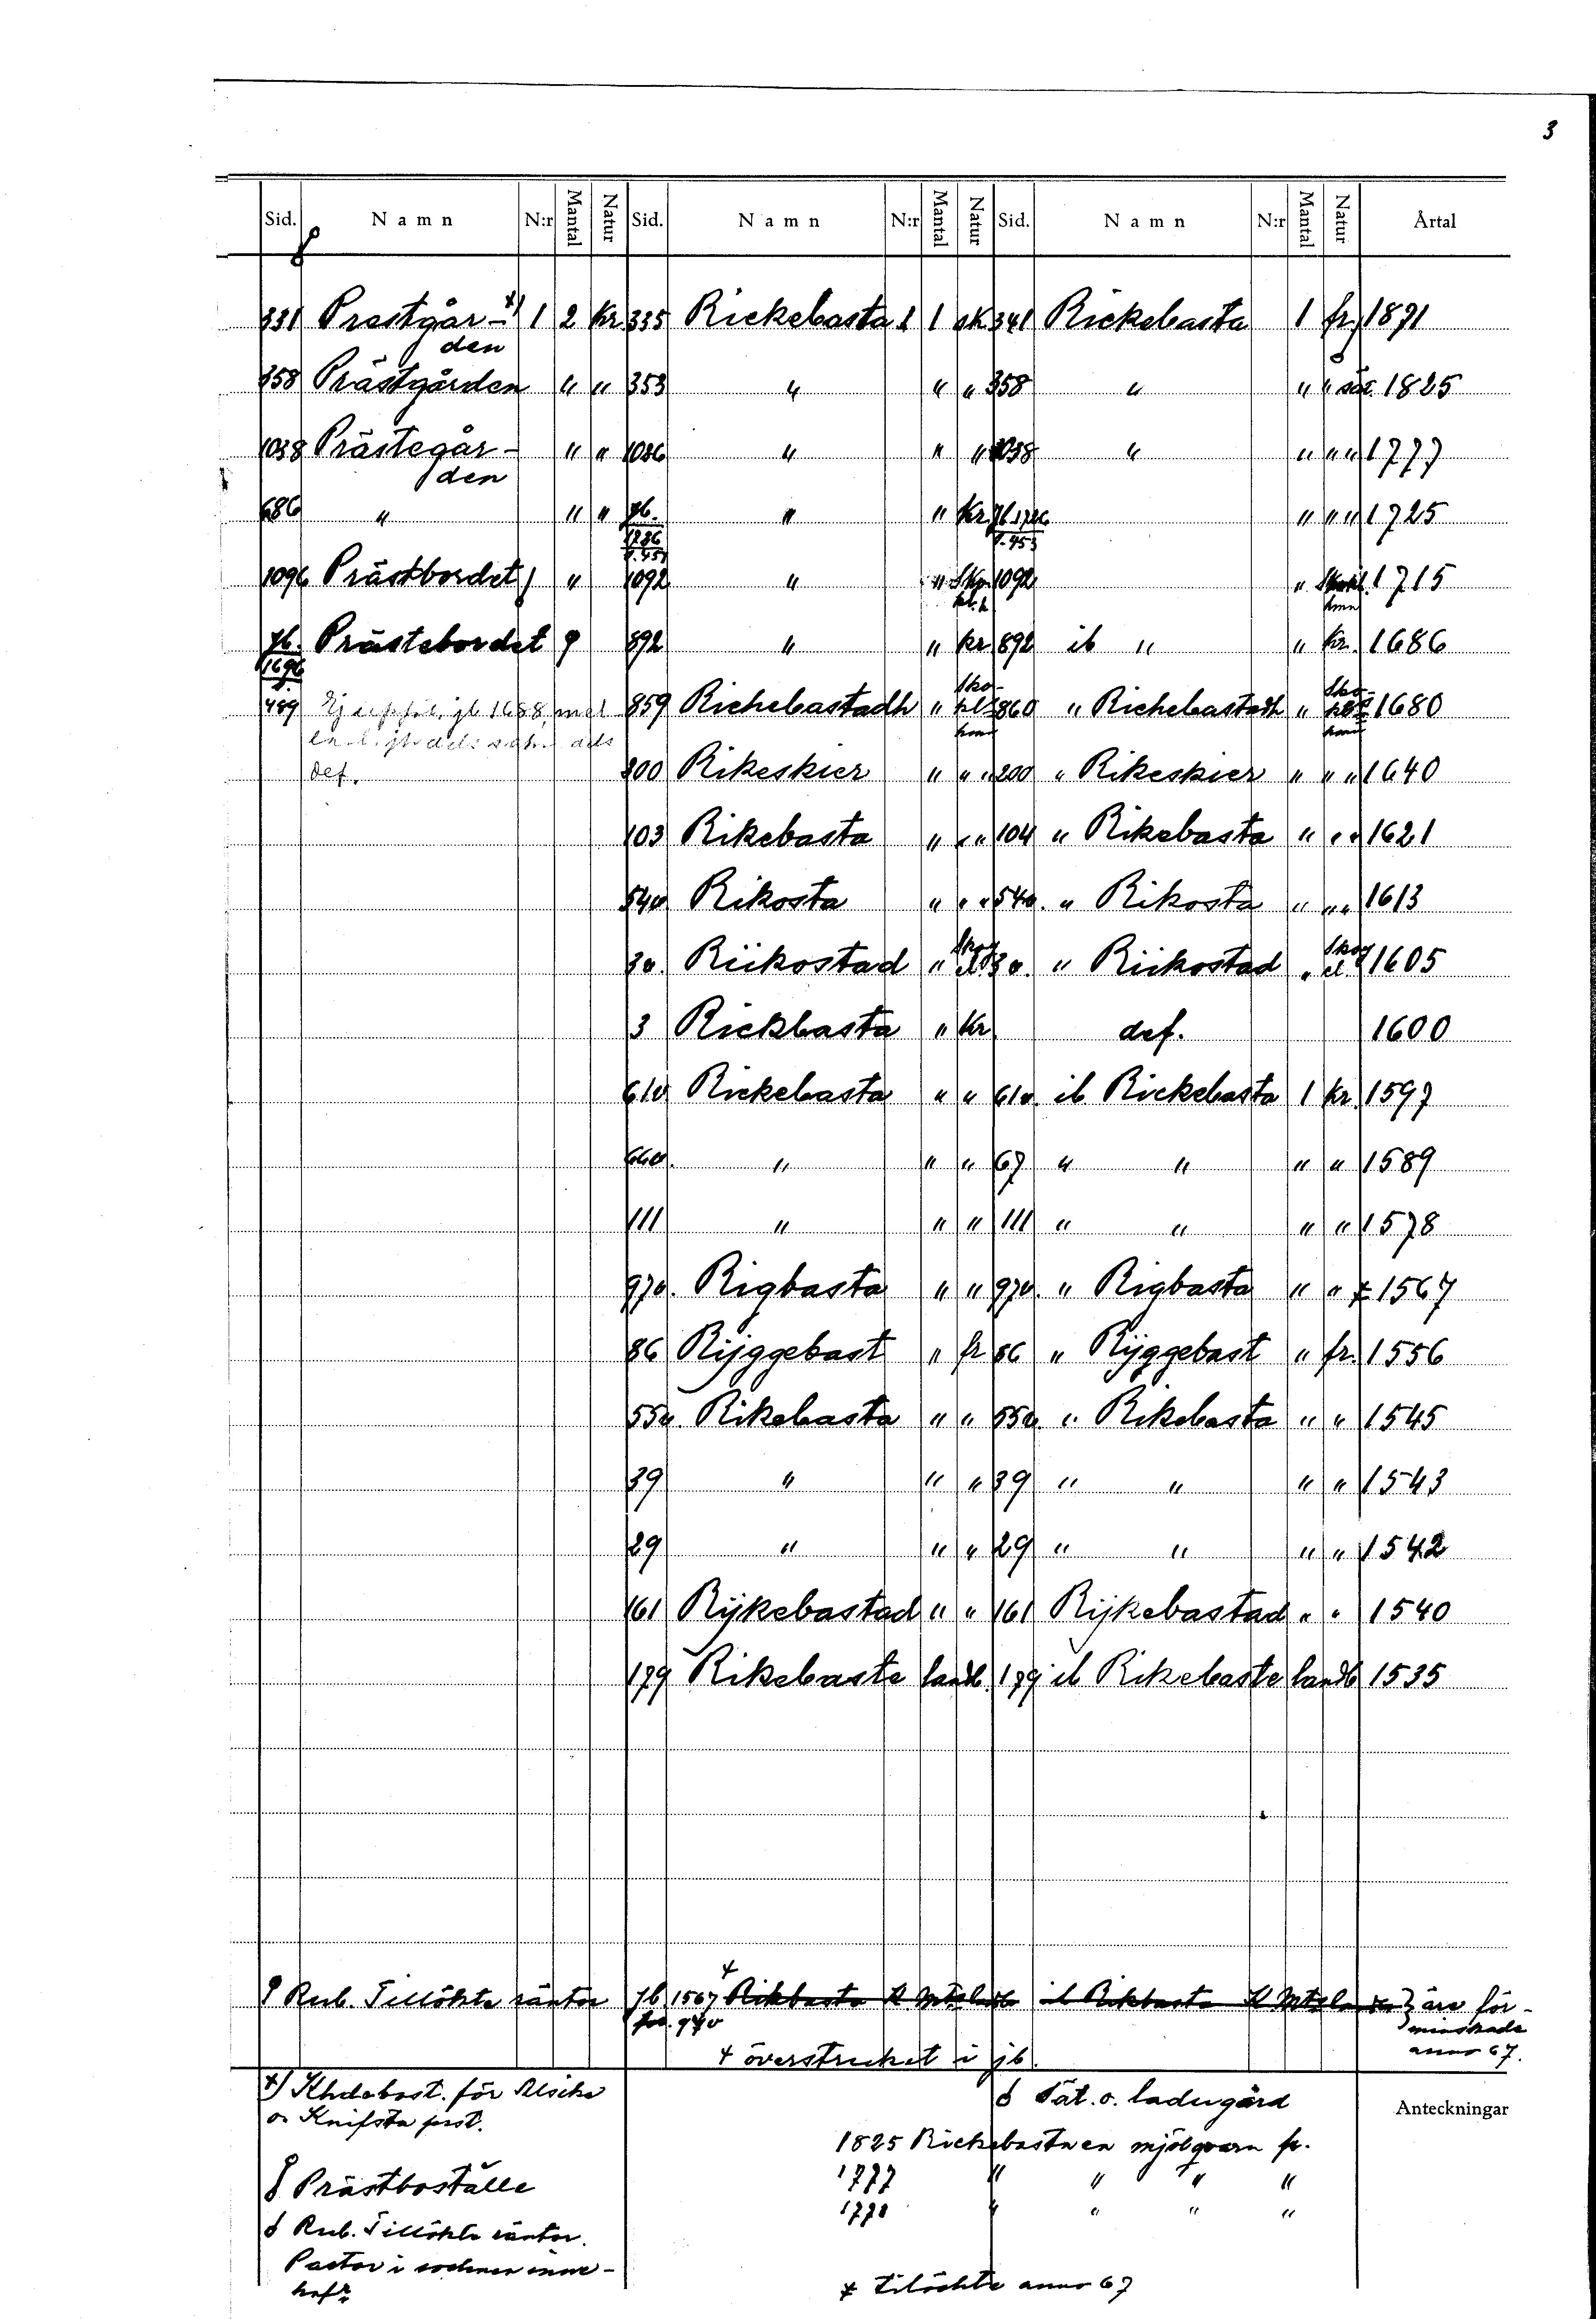 3
Sid. Namn N:r Mantal Natur Sid. Namn N:r Mantal Natur Sid. Namn N:r Mantal Natur Årtal
331 Prestgår- x) 1 2 kr 335 Rickebasta 1 1 sk 341 Rickebasta 1 fr 1871
den
358 Prästgården " " 353 " " " 358 " " " sät. 1825
1038 Prästegår- " " 1036 " " " 1038 " " " " 1777
den
686 " " " Jb. " " Kr. Jb 1726 " " " 1725
1726
s. 451 s. 453
1096 Prästbordet 1 " 1092 " " Sko 1092 " 1715
hmn
Jb. Prästebordet 892 " " kr 892 ib " " kr. 1686
1696
s.
489 859 Richebastadh " Sko- 860 " Richebastadh " Sko- 1680
hmn hmn
def. 200 Rikeskier " " " 200 " Rikeskier " " " 1640
103 Rikebasta " " " 104 " Rikebasta " " " 1621
54v Rikosta " " " 54v. " Rikosta " " " 1613
3v. Riikostad " Skog 3v. " Riikostad " Skog 1605
3 Rickbasta " Kr def. 1600
61v Rickebasta " " 61v. ib Rickebasta 1 Kr. 1597
66v. " " " 67 " " " " 1589
111 " " " 111 " " " " 1578
97v. Rigbasta " " 97v. " Rigbasta " " ҂ 1567
86 Rijggebast " fr 86 " Rijggebast " fr. 1556
55v. Rikebasta " " 55v. " Rikebasta " " 1545
39 " " " 39 " " " " 1543
29 " " " 29 " " " " 1542
161 Rijkebastad " " 161 Rijkebastad " " 1540
179 Rikebaste landb. 179 ib Rikebaste landb 1535
Rub. Tillökte räntor Jb 1567 + Rikbasta ib Rikbasta äro för-
97v minskade
anno 67.
+ överstruket i jb.
x) Khdebost. för Alsike
o. Knifsta prst.
Prästboställe
Rub. Tillökte räntor.
Pastor i sochnen inne-
hafr
Sät. o. ladugård
1825 Rickebasta en mjölqvarn fr.
1777 " " " "
1770 " " " "
Tilöchte anno 67
Anteckningar